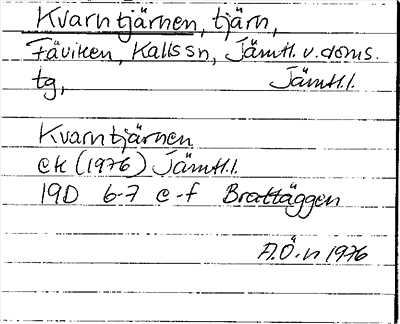 Kvarntjärnen, tjärn,
Fäviken, Kallssn, Jämtl. v. doms.
tg, Jämtl.l.
Kvarntjärnen
ek (1976) Jämtl.l.
19D 6-7 e-f Brattäggen
A.Ö-n 1976